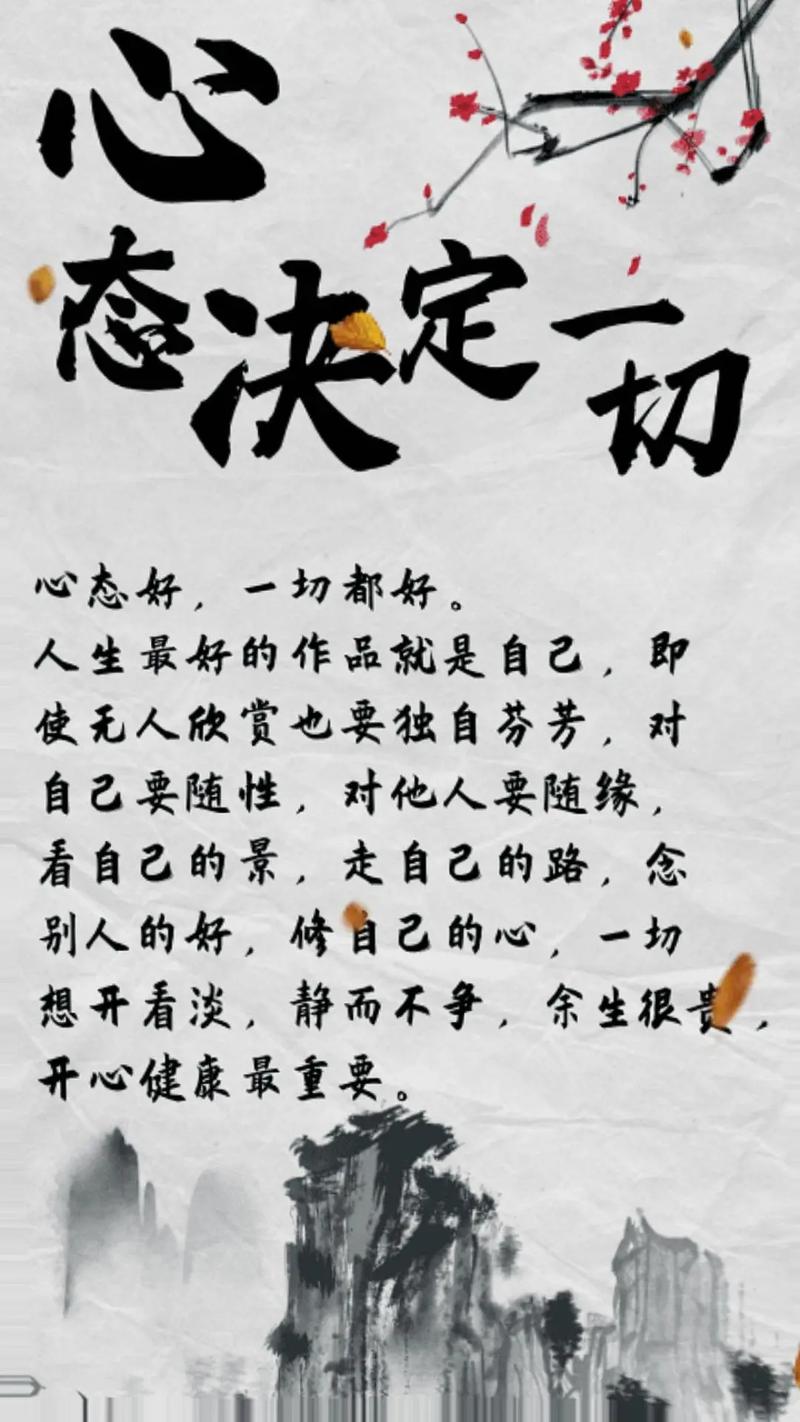 心
态决定一切
心态好，一切都好。
人生最好的作品就是自己，即
使无人欣赏也要独自芬芳，对
自己要随性，对他人要随缘，
看自己的景，走自己的路，念
别人的好，修自己的心，一切
想开看淡，静而不争，余生很贵，
开心健康最重要。